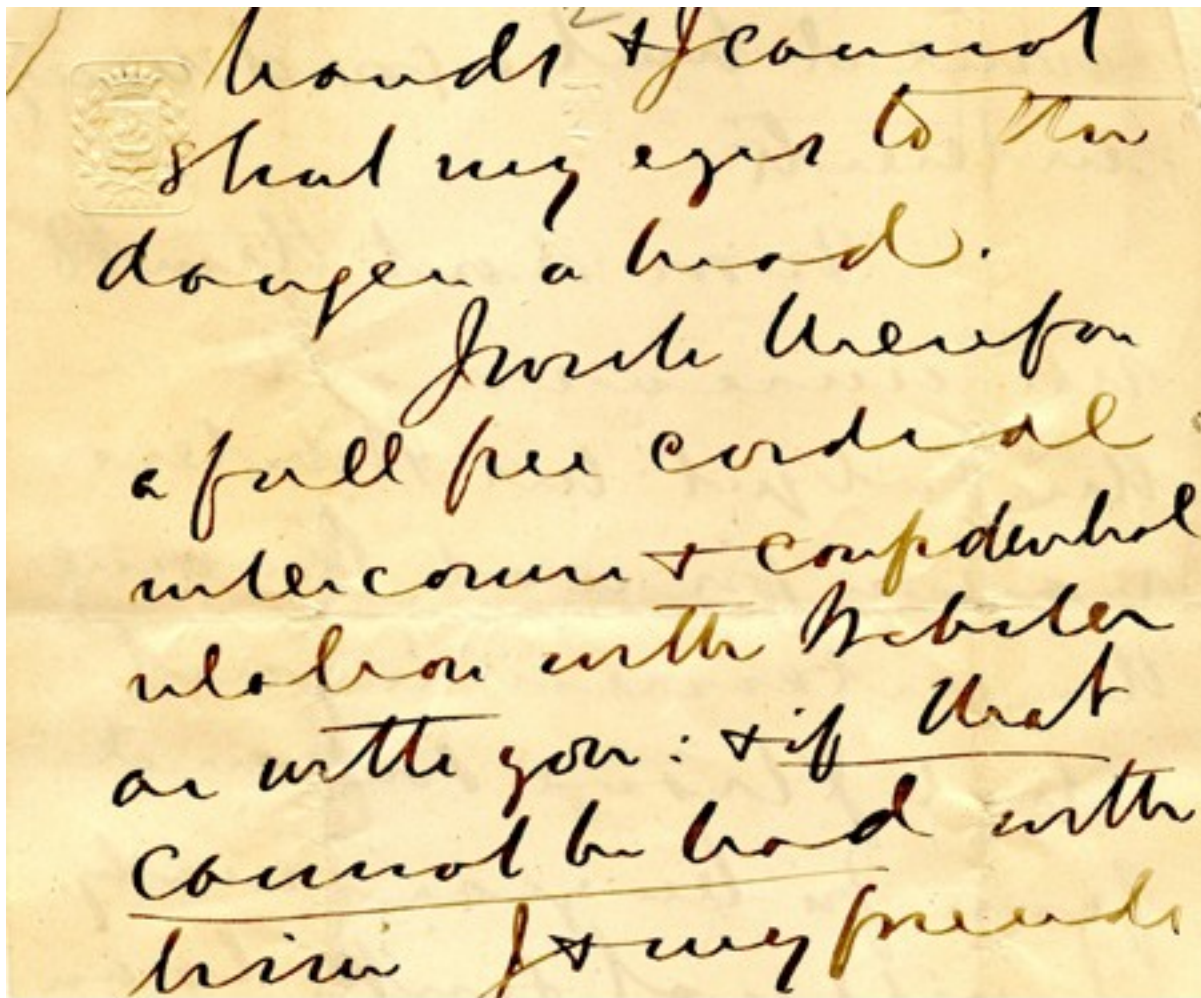 hands & I cannot
shut my eyes to the
danger ahead.
I wish therefore
a full free cordial
intercourse & confidential
relation with Webster
as with you: & if that
cannot be had with
him I & my friends